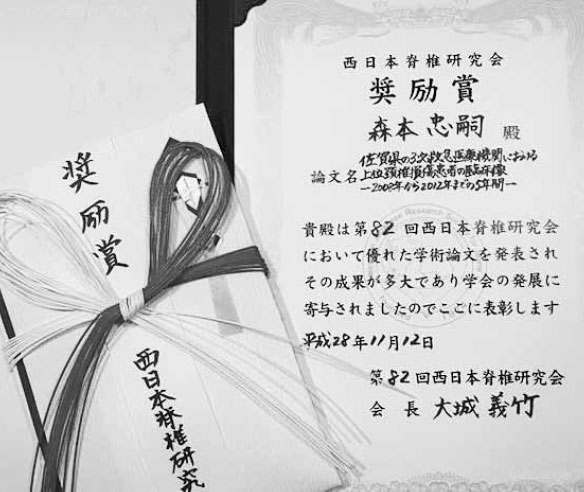 西日本脊椎研究会
奨励賞
森本忠嗣 殿
佐賀県の3次救急医療機関における
論文名 上位頚椎損傷患者の臨床像
―2002年から2012年までの5年間―
貴殿は第82回西日本脊椎研究会
において優れた学術論文を発表され
その成果が多大であり学会の発展に
寄与されましたのでここに表彰します
平成28年11月12日
第82回西日本脊椎研究会
会長 大城義竹
奨励賞
西日本脊椎研究